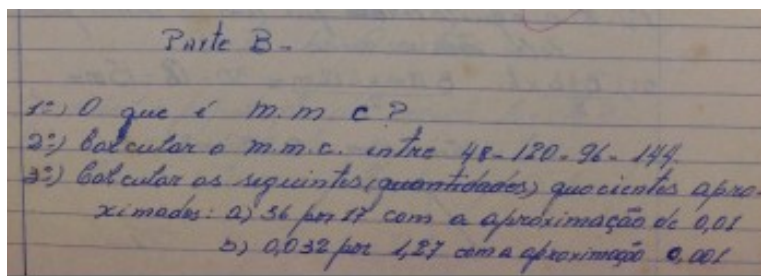 Parte B-
1º) O que é m.m c?
2º) Calcular o m.m.c. entre 48-120-96-144.
3º) Calcular os seguintes (quantidades) quocientes apro-
ximados: a) 36 por 17 com a aproximação de 0,01
b) 0,032 por 1,27 com a aproximação 0,001